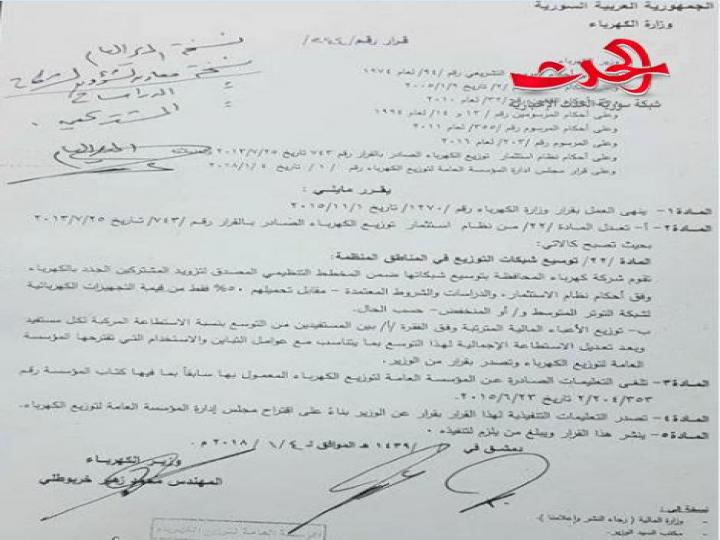 الجمهورية العربية السورية
وزارة الكهرباء
قرار رقم/٣٤٤/
نسخة المدير العام
الحدث
شبكة سورية الحدث الإخبارية
التشريعي رقم /٩٤/ لعام ١٩٧٤
تاريخ ٢٠٠٥/١/٩
لعام ٢٠١٠
وعلى أحكام المرسومين رقم / ١٣ و ١٤/ لعام ١٩٩٤
وعلى أحكام المرسوم رقم /٣٥٥/ لعام ٢٠١١
وعلى المرسوم رقم /٢٠٣/ لعام ٢٠١٦
وعلى أحكام نظام استثمار توزيع الكهرباء الصادر بالقرار رقم ٧٤٣ تاريخ ٢٠١٣/٧/٢٥
وعلى قرار مجلس ادارة المؤسسة العامة لتوزيع الكهرباء رقم / ١ / تاريخ ٢٠١٨/١/٤
يقرر مايلي :
المادة ١- ينهى العمل بقرار وزارة الكهرباء رقم /١٢٧٠/ تاريخ ٢٠١٥/١١/١
المادة ٢- أ- تعدل المادة /٢٢/ من نظام استثمار توزيع الكهرباء الصادر بالقرار رقم /٧٤٣/ تاريخ ٢٠١٣/٧/٢٥
بحيث تصبح كالاتي:
المادة /٢٢/ توسيع شبكات التوزيع في المناطق المنظمة:
تقوم شركة كهرباء المحافظة بتوسيع شبكاتها ضمن المخطط التنظيمي المصدق لتزويد المشتركين الجدد بالكهرباء
وفق أحكام نظام الاستثمار، والدراسات والشروط المعتمدة - مقابل تحميلهم ٥٠% فقط من قيمة التجهيزات الكهربائية
لشبكة التوتر المتوسط و/ أو المنخفض- حسب الحال.
ب- توزيع الأعباء المالية المترتبة وفق الفقرة /أ/ بين المستفيدين من التوسع بنسبة الاستطاعة المركبة لكل مستفيد
وبعد تعديل الاستطاعة الإجمالية لهذا التوسع بما يتناسب مع عوامل التباين والاستخدام التي تقترحها المؤسسة
العامة لتوزيع الكهرباء وتصدر بقرار من الوزير.
المادة ٣- تلغى التعليمات الصادرة عن المؤسسة العامة لتوزيع الكهرباء المعمول بها سابقاً بما فيها كتاب المؤسسة رقم
٢/٢٠٤/٣٥٣ تاريخ ٢٠١٥/٦/٢٣.
المادة ٤- تصدر التعليمات التنفيذية لهذا القرار بقرار عن الوزير بناءً على اقتراح مجلس إدارة المؤسسة العامة لتوزيع الكهرباء.
المادة ٥- ينشر هذا القرار ويبلغ من يلزم لتنفيذه .
دمشق في / /١٤٣٩ هـ الموافق لـ ٤ / ١ / ٢٠١٨ م .
وزير الكهرباء
المهندس محمد زهير خربوطلي
نسخة إلى :
- وزارة المالية ( رجاء النشر وإعلامنا ).
- مكتب السيد الوزير.
المؤسسة العامة لتوزيع الكهرباء